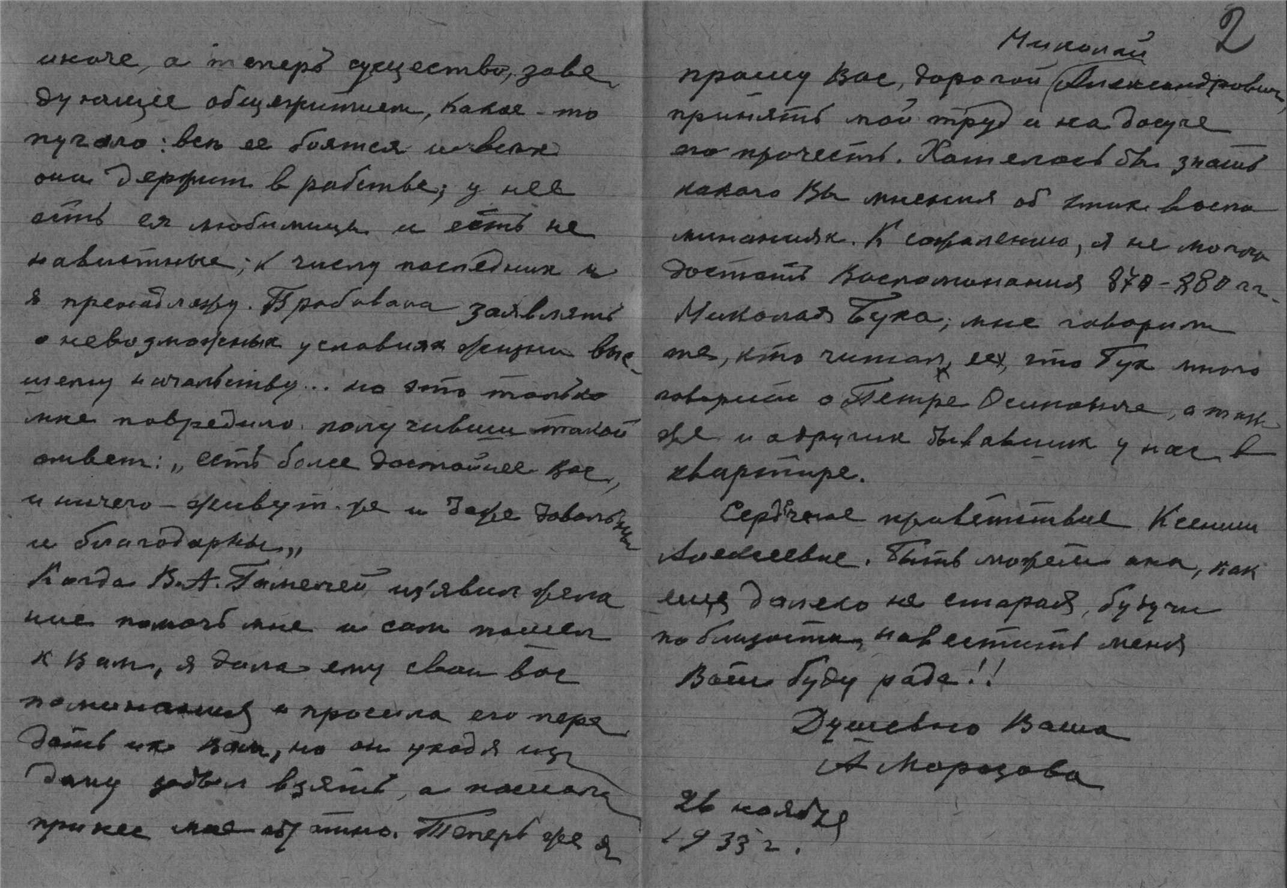 иначе, а теперь существо, заве
дующее общежитием, какое-то
пугало: все ее боятся и всех
она держит в рабстве; у нее
есть ея любимицы и есть не
навистные; к числу последних и
я пренадлежу. Пробовала заявлять
о невозможных условиях жизни выс-
шему начальству... но это только
мне повредило получивши такой
ответ: „есть более достойнее вас,
и ничего – живут же и даже довольны
и благодарны„
Когда В.А. изъявил жела
ние помочь мне и сам пошел
к Вам, я дала ему свои вос
поминания и просила его пере
дать их Вам, но он уходя из
дому забыл взять, а
принес мне обратно. Теперь же я
2
Николай
прошу Вас, дорогой Александрович
принять мой труд и на досуге
его прочесть. Хотелось бы знать
какого Вы мнения об этих воспо
минаниях. К сожалению, я не могла
достать Воспоминания 870–880 гг.
Николая Буха; мне говорили
те, кто читал их, что Бух много
говорит о Петре Осиповиче, а так-
же и о других бывавших у нас в
квартире.
Сердечное приветствие Ксении
Алексеевне. Быть может она, как
еще далеко не старая, будучи
по близости, навестить меня
буду рада!!
Душевно Ваша
А Морозова
26 ноября
1933 г.